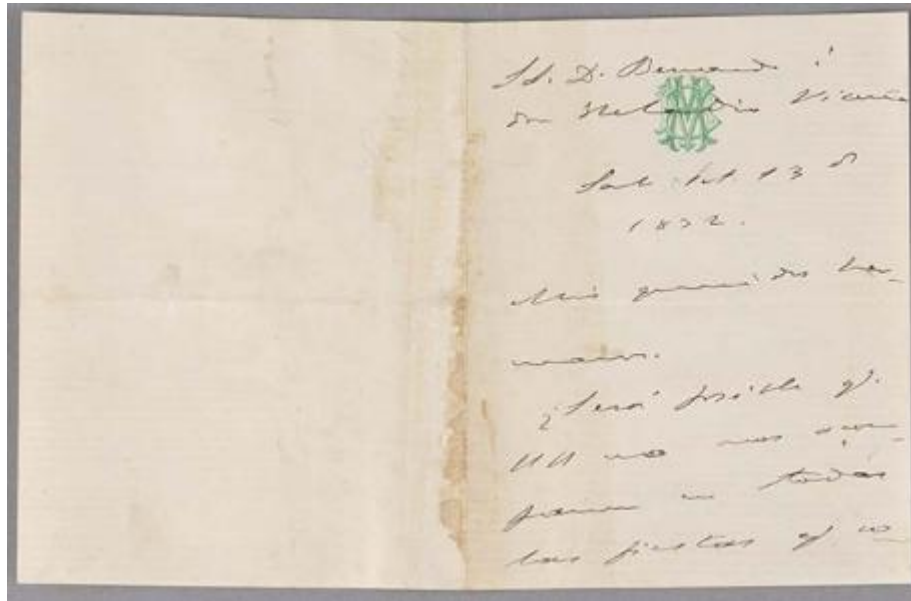 SS. D. Bernardo i
don Nataldio Vicuña
Set. 13 de
1882.
Mis queridos her-
manos.
¿Será posible q.
UU no nos acom-
pañen en todas
las fiestas q. co-